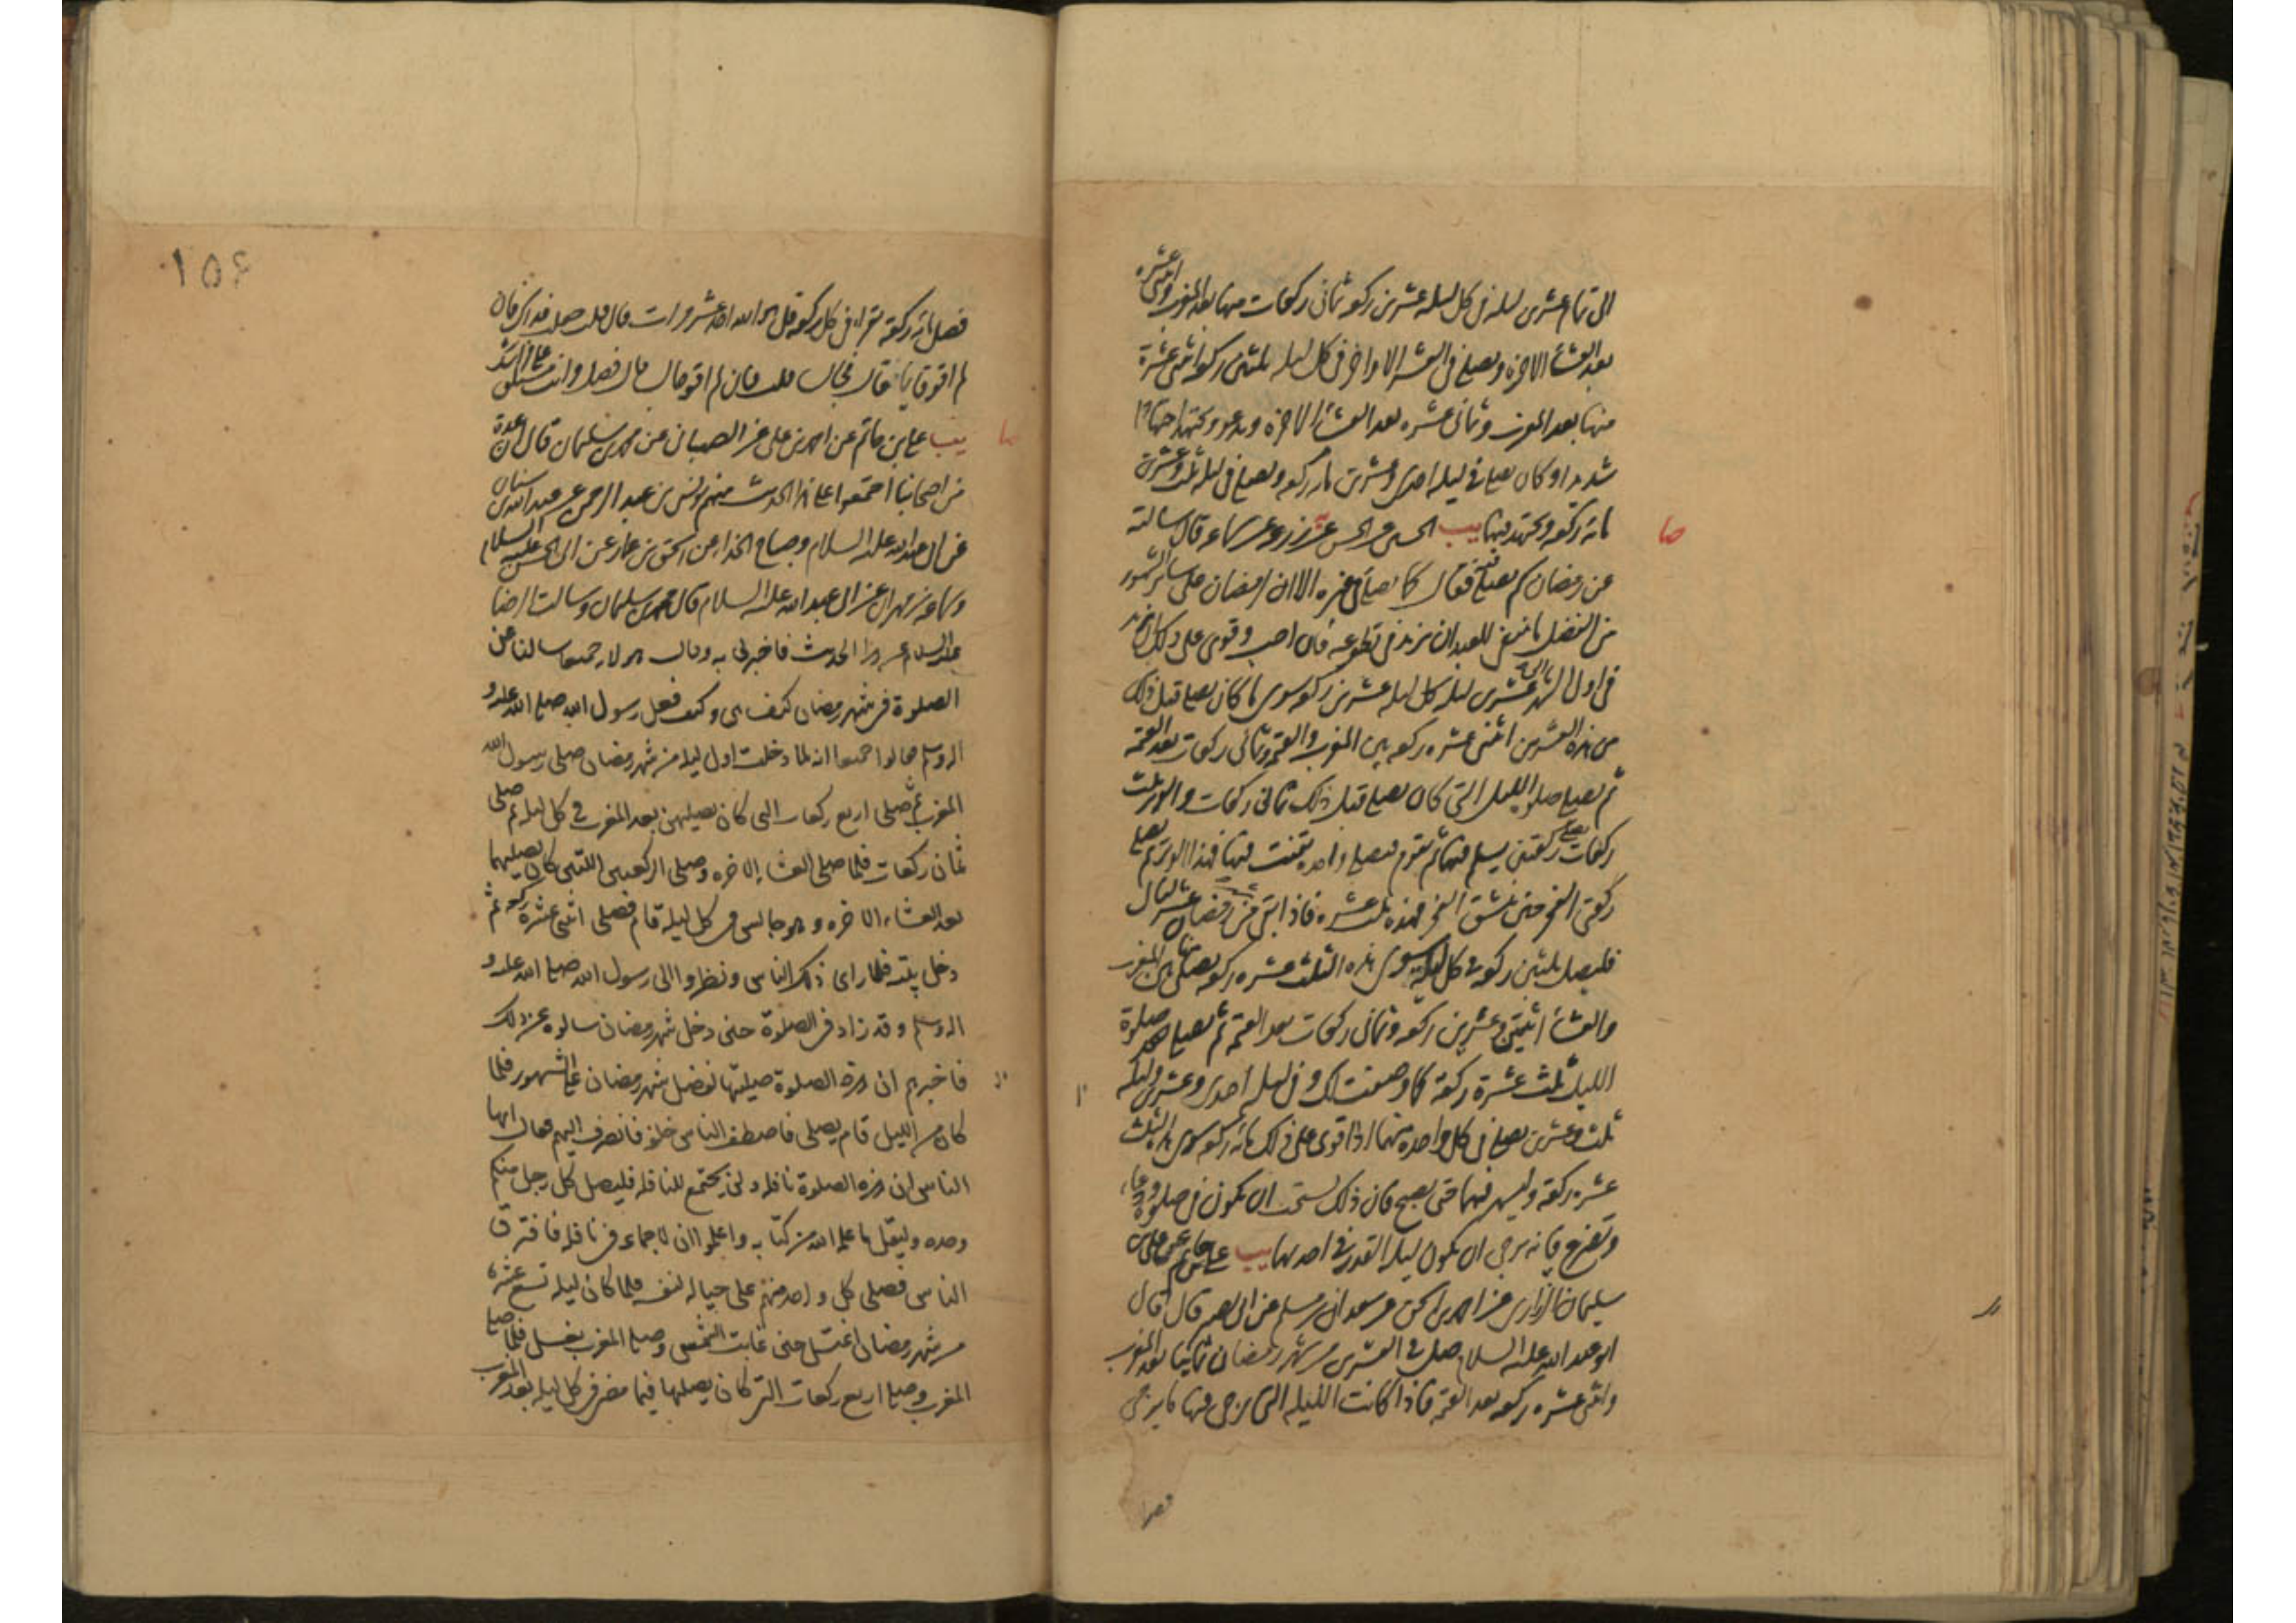 الى تمام عشرين ليله فى كل ليله عشرين ركعه ثمانى ركعات منها بعد المغرب واثنتى عشره
بعد العشاء الاخره ويصلى فى العشر الاواخر فى كل ليله ثلثين ركعه اثنتى عشرة
منها بعد المغرب وثمانى عشره بعد العشاء الاخره ويدعو ويجتهد اجتهادا
شديدا وكان يصلى فى ليله احدى وعشرين مائه ركعه ويصلى فى ليله ثلث وعشرين
مائه ركعه ويجتهد فيهما يب الحسين عن الحسن عن زرعه عن سماعه قال سالته
عن رمضان كم يصلى فيه فقال كما يصلى فى غيره الا ان لرمضان على سائر الشهور
من الفضل ما ينبغى للعبد ان يزيد فى تطوعه فان احب وقوى على ذلك ان يزيد
فى اول الشهر الى عشرين ليله كل ليله عشرين ركعه سوى ما كان يصلى قبل ذلك
من هذه العشرين اثنتى عشره ركعه بين المغرب والعتمه وثمانى ركعات بعد العتمه
ثم يصلى صلوه الليل التى كان يصلى قبل ذلك ثمانى ركعات والوتر ثلث
ركعات يصلى ركعتين يسلم فيهما ثم يقوم فيصلى واحده يقنت فيها فهذا الوتر ثم يصلى
ركعتى الفجر حتى ينشق الفجر فهذه ثلث عشره فاذا بقى من رمضان عشر ليال
فليصل ثلثين ركعه فى كل ليله سوى هذه الثلث عشره ركعه يصلى منها بين المغرب
والعشاء اثنتين وعشرين ركعه وثمانى ركعات بعد العتمه ثم يصلى بعد صلوة
الليل ثلث عشرة ركعة كما وصفت لك وفى ليله احدى وعشرين وليله
ثلث وعشرين يصلى فى كل واحده منهما اذا قوى على ذلك مائه ركعه سوى هذه الثلث
عشره ركعة وليسهر فيهما حتى يصبح فان ذلك يستحب ان يكون فى صلوة ودعاء
وتضرع فانه يرجى ان يكون ليله القدر فى احدهما يب على بن حاتم عن على بن
سليمان الزرارى عن احمد بن اسحق عن سعدان بن مسلم عن ابى بصير قال قال
ابو عبد الله عليه السلام صل فى العشرين من شهر رمضان ثمانيا بعد المغرب
واثنتى عشره ركعه بعد العتمه فاذا كانت الليله التى يرجى فيها ما يرجى
فصل
۱۵۶
فصل مائه ركعة تقرا فى كل ركعه قل هو الله احد عشر مرات قال قلت جعلت فداك فان
لم اقو قائما فقال فجالسا قلت فان لم اقو جالسا قال فصل وانت مستلق على فراشك
يب على بن حاتم عن احمد بن على عن محمد بن ابى الصهبان عن محمد بن سليمان قال ان عدة
من اصحابنا اجتمعوا على هذا الحديث منهم يونس بن عبد الرحمن عن عبد الله بن سنان
عن ابى عبد الله عليه السلام وصباح الحذاء عن اسحق بن عمار عن ابى الحسن عليه السلام
وسماعه بن مهران عن ابى عبد الله عليه السلام قال محمد بن سليمان وسالت الرضا
عليه السلام عن هذا الحديث فاخبرنى به وقال هولاء جميعا سالنا عن
الصلوة فى شهر رمضان كيف هى وكيف فعل رسول الله صلى الله عليه و
اله وسلم فقالوا جميعا انه لما دخلت اول ليله من شهر رمضان صلى رسول الله
المغرب ثم صلى اربع ركعات التى كان يصليهن بعد المغرب فى كل ليله ثم صلى
ثمان ركعات فلما صلى العشاء الاخره وصلى الركعتين اللتين كان يصليهما
بعد العشاء الاخره وهو جالس فى كل ليلة قام فصلى اثنتى عشرة ركعه ثم
دخل بيته فلما راى ذلك الناس ونظروا الى رسول الله صلى الله عليه و
اله وسلم وقد زاد فى الصلوة حتى دخل شهر رمضان سالوه عن ذلك
فاخبرهم ان هذه الصلوة صليتها لفضل شهر رمضان على الشهور فلما
كان من الليل قام يصلى فاصطف الناس خلفه فانصرف اليهم فقال ايها
الناس ان هذه الصلوة نافله ولن يجتمع للنافله فليصل كل رجل منكم
وحده وليقل ما علمه الله من كتابه واعلموا ان لا جماعه فى نافله فافترق
الناس فصلى كل واحد منهم على حياله لنفسه فلما كان ليله تسع عشره
من شهر رمضان اغتسل حتى غابت الشمس وصلى المغرب بغسل فلما صلى
المغرب وصلى اربع ركعات التى كان يصليها فيما مضى فى كل ليله بعد المغرب